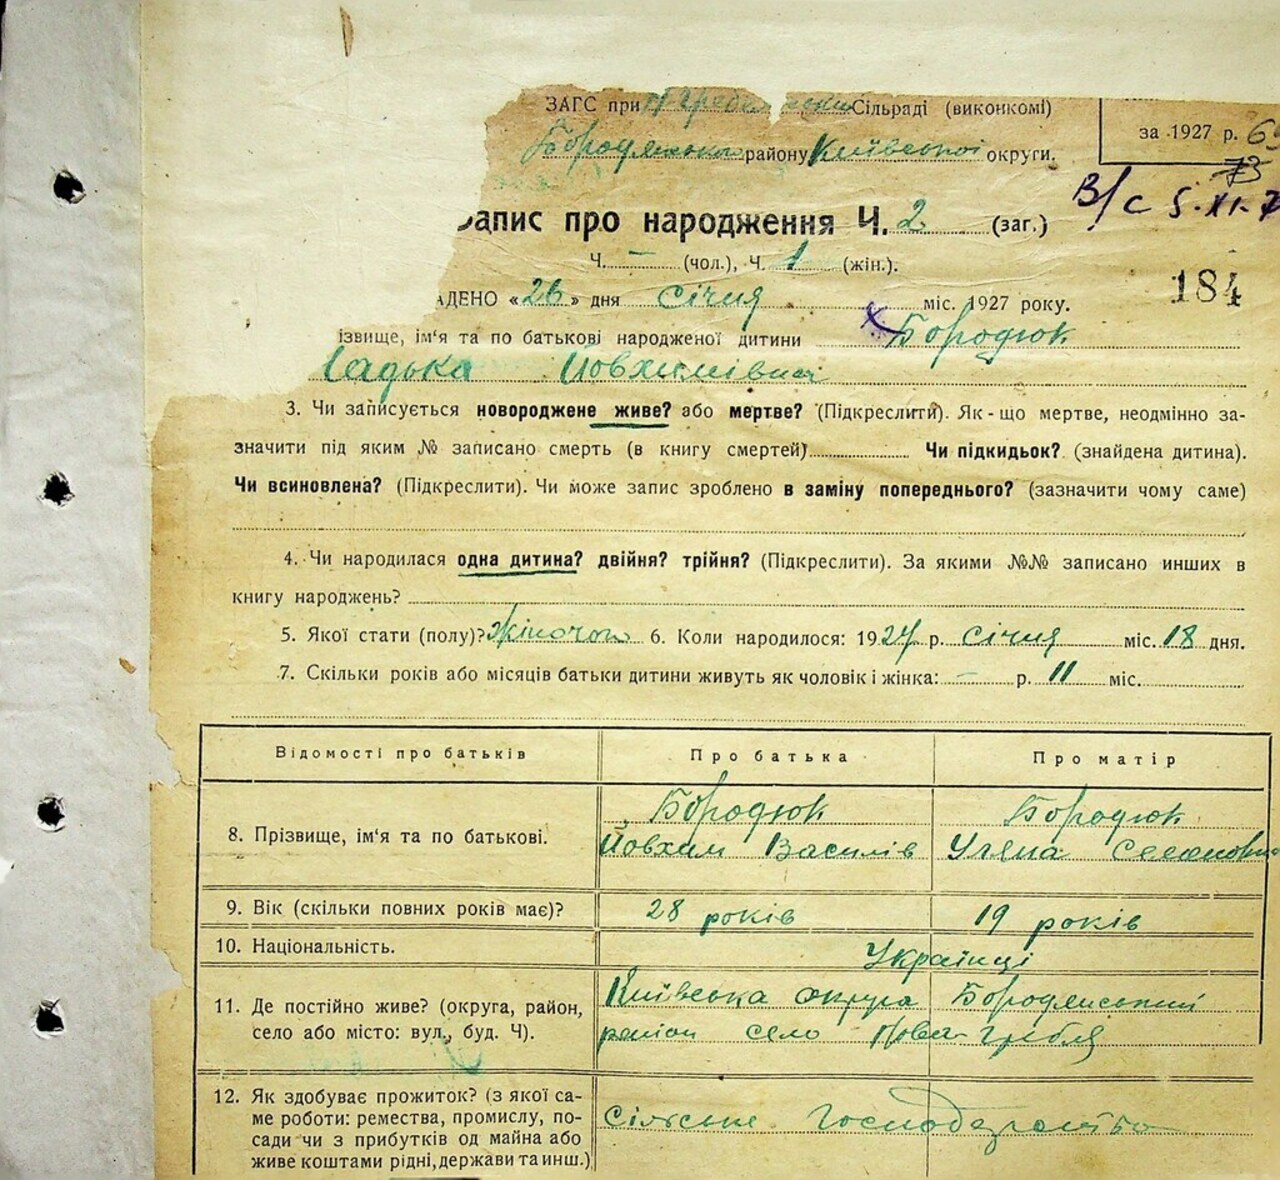 ЗАГС при Н Гребельській Сільраді (виконкомі)
за 1927 р.
Бородянського району Київської округи.
73
В/с 5.XI.7
Запис про народження Ч. 2 (заг.)
Ч. – (чол.), Ч. 1 (жін.).
184
АДЕНО «26» дня січня міс. 1927 року.
ізвище, ім'я та по батькові народженої дитини х Бородюк
Йовхимівна
3. Чи записується новороджене живе? або мертве? (Підкреслити). Як-що мертве, неодмінно за-
значити під яким № записано смерть (в книгу смертей) Чи підкидьок? (знайдена дитина).
Чи всиновлена? (Підкреслити). Чи може запис зроблено в заміну попереднього? (зазначити чому саме)
4. Чи народилася одна дитина? двійня? трійня? (Підкреслити). За якими №№ записано инших в
книгу народжень?
5. Якої стати (полу)? жіночої 6. Коли народилося: 1927 р. січня міс. 18 дня.
7. Скільки років або місяців батьки дитини живуть як чоловік і жінка: – р. 11 міс.
Відомості про батьків Про батька Про матір
8. Прізвище, ім'я та по батькові. Бородюк Бородюк
Йовхим Василів Уляна
9. Вік (скільки повних років має)? 28 років 19 років
10. Національність. Українці
11. Де постійно живе? (округа, район, Київська округа Бородянський
село або місто: вул., буд. Ч). район село Нова-Гребля
12. Як здобуває прожиток? (з якої са-
ме роботи: ремества, промислу, по- сільське господарство
сади чи з прибутків од майна або
живе коштами рідні, держави та инш.)